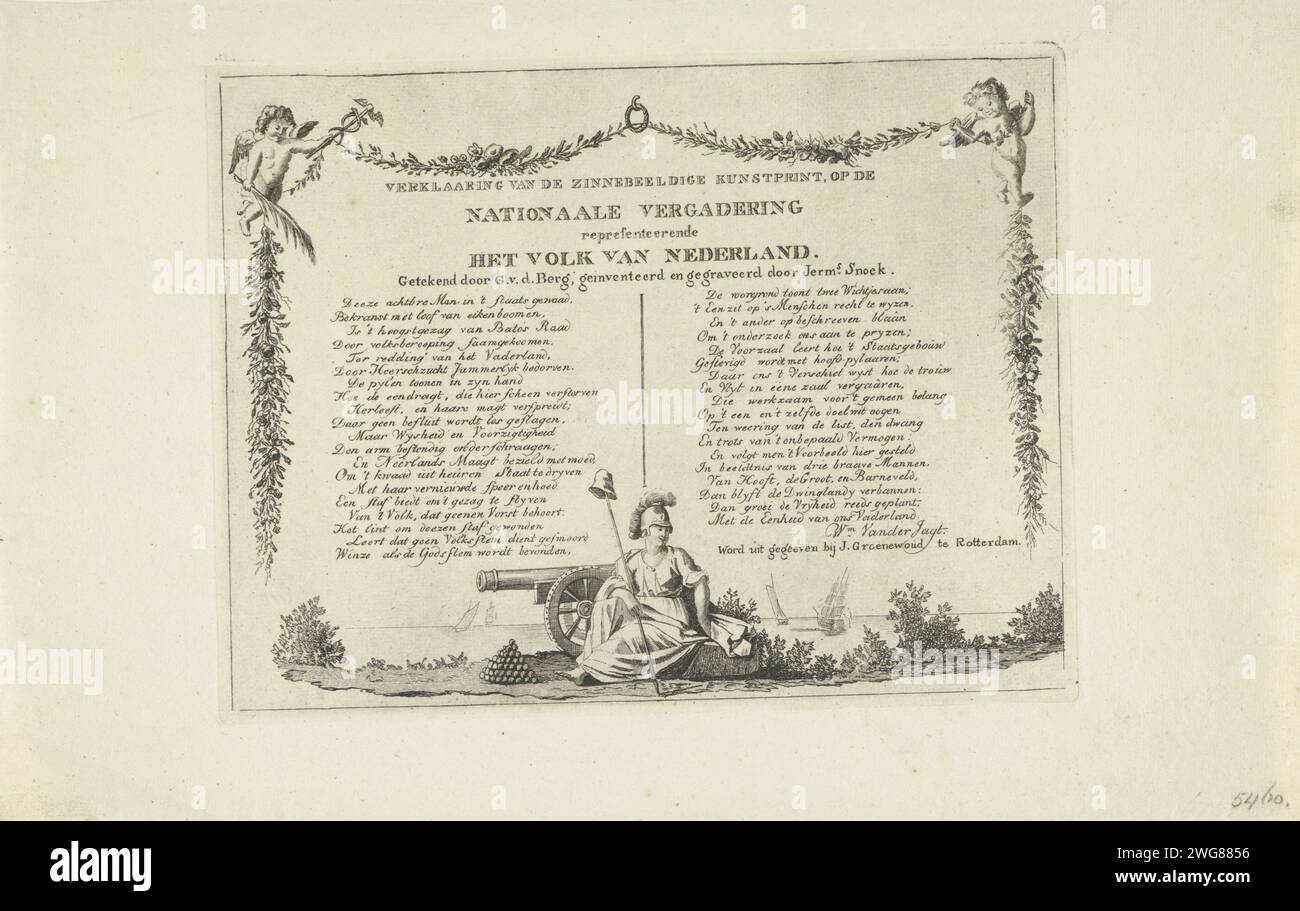 VERKLAARING VAN DE ZINNEBEELDIGE KUNSTPRINT, OP DE
NATIONAALE VERGADERING
repreſenteerende
HET VOLK VAN NEDERLAND.
Getekend door G. v. d. Berg, geinventeerd en gegraveerd door Jerm.s Snoek.
Deeze achtbre Man in 't ſtaats gewaad,
Bekranst met loof van eikenboomen,
Is 't hoogstgezag van Bato's Raad
Door volksberoeping ſaamgekoomen.
Ter redding van het Vaderland,
Door Heerschzucht Jammerlyk bedorven.
De pylen toonen in zyn hand
Hoe de eendragt, die hier ſcheen verſtorven
Herleeft, en haare magt verſpreidt;
Daar geen beſluit wordt los geſlagen,
Maar Wysheid en Voorzigtigheid
Den arm beſtendig onderſchraagen;
En Neerlands Maagt bezield met moed,
Om 't kwaad uit heuren Staat te dryven
Met haar vernieuwde ſpeer en hoed
Een ſtaf biedt om 't gezag te ſtyven
Van 't Volk, dat geenen Vorst behoort.
Het lint om deezen ſtaf gewonden
Leert dat geen Volksſtem dient geſmoord
Wenze als de Godsſtem wordt bevonden,
De voorgrond toont twee Wichtjes aan,
't Een zit op 's Menschen recht te wyzen,
En 't ander op beschreeven blaân
Om 't onderzoek ons aan te pryzen;
De Voorzaal leert hoe 't Staatsgebouw
Geſtevigd wordt met hoofd-pylaaren;
Daar ons 't Verschiet wyst hoe de trouw
En Vlyt in eene zaal vergaâren,
Die werkzaam voor 't gemeen belang
Op 't een en 't zelfde doelwit oogen
Ten weering van de list, den dwang
En trots van 't onbepaald Vermogen:
En volgt men 't Voorbeeld hier gesteld
In beeldtnis van drie braave Mannen.
Van Hooft, de Groot, en Barneveld,
Dan blyft de Dwinglandy verbannen:
Dan groet de Vryheid reids geplant,
Met de Eenheid van ons Vaderland.
Wm. Vander Jagt.
Word uit gegeeven bij J. Groenewoud te Rotterdam.
54/20.
alamy
alamy
alamy
Image ID: 2WG8856
www.alamy.com